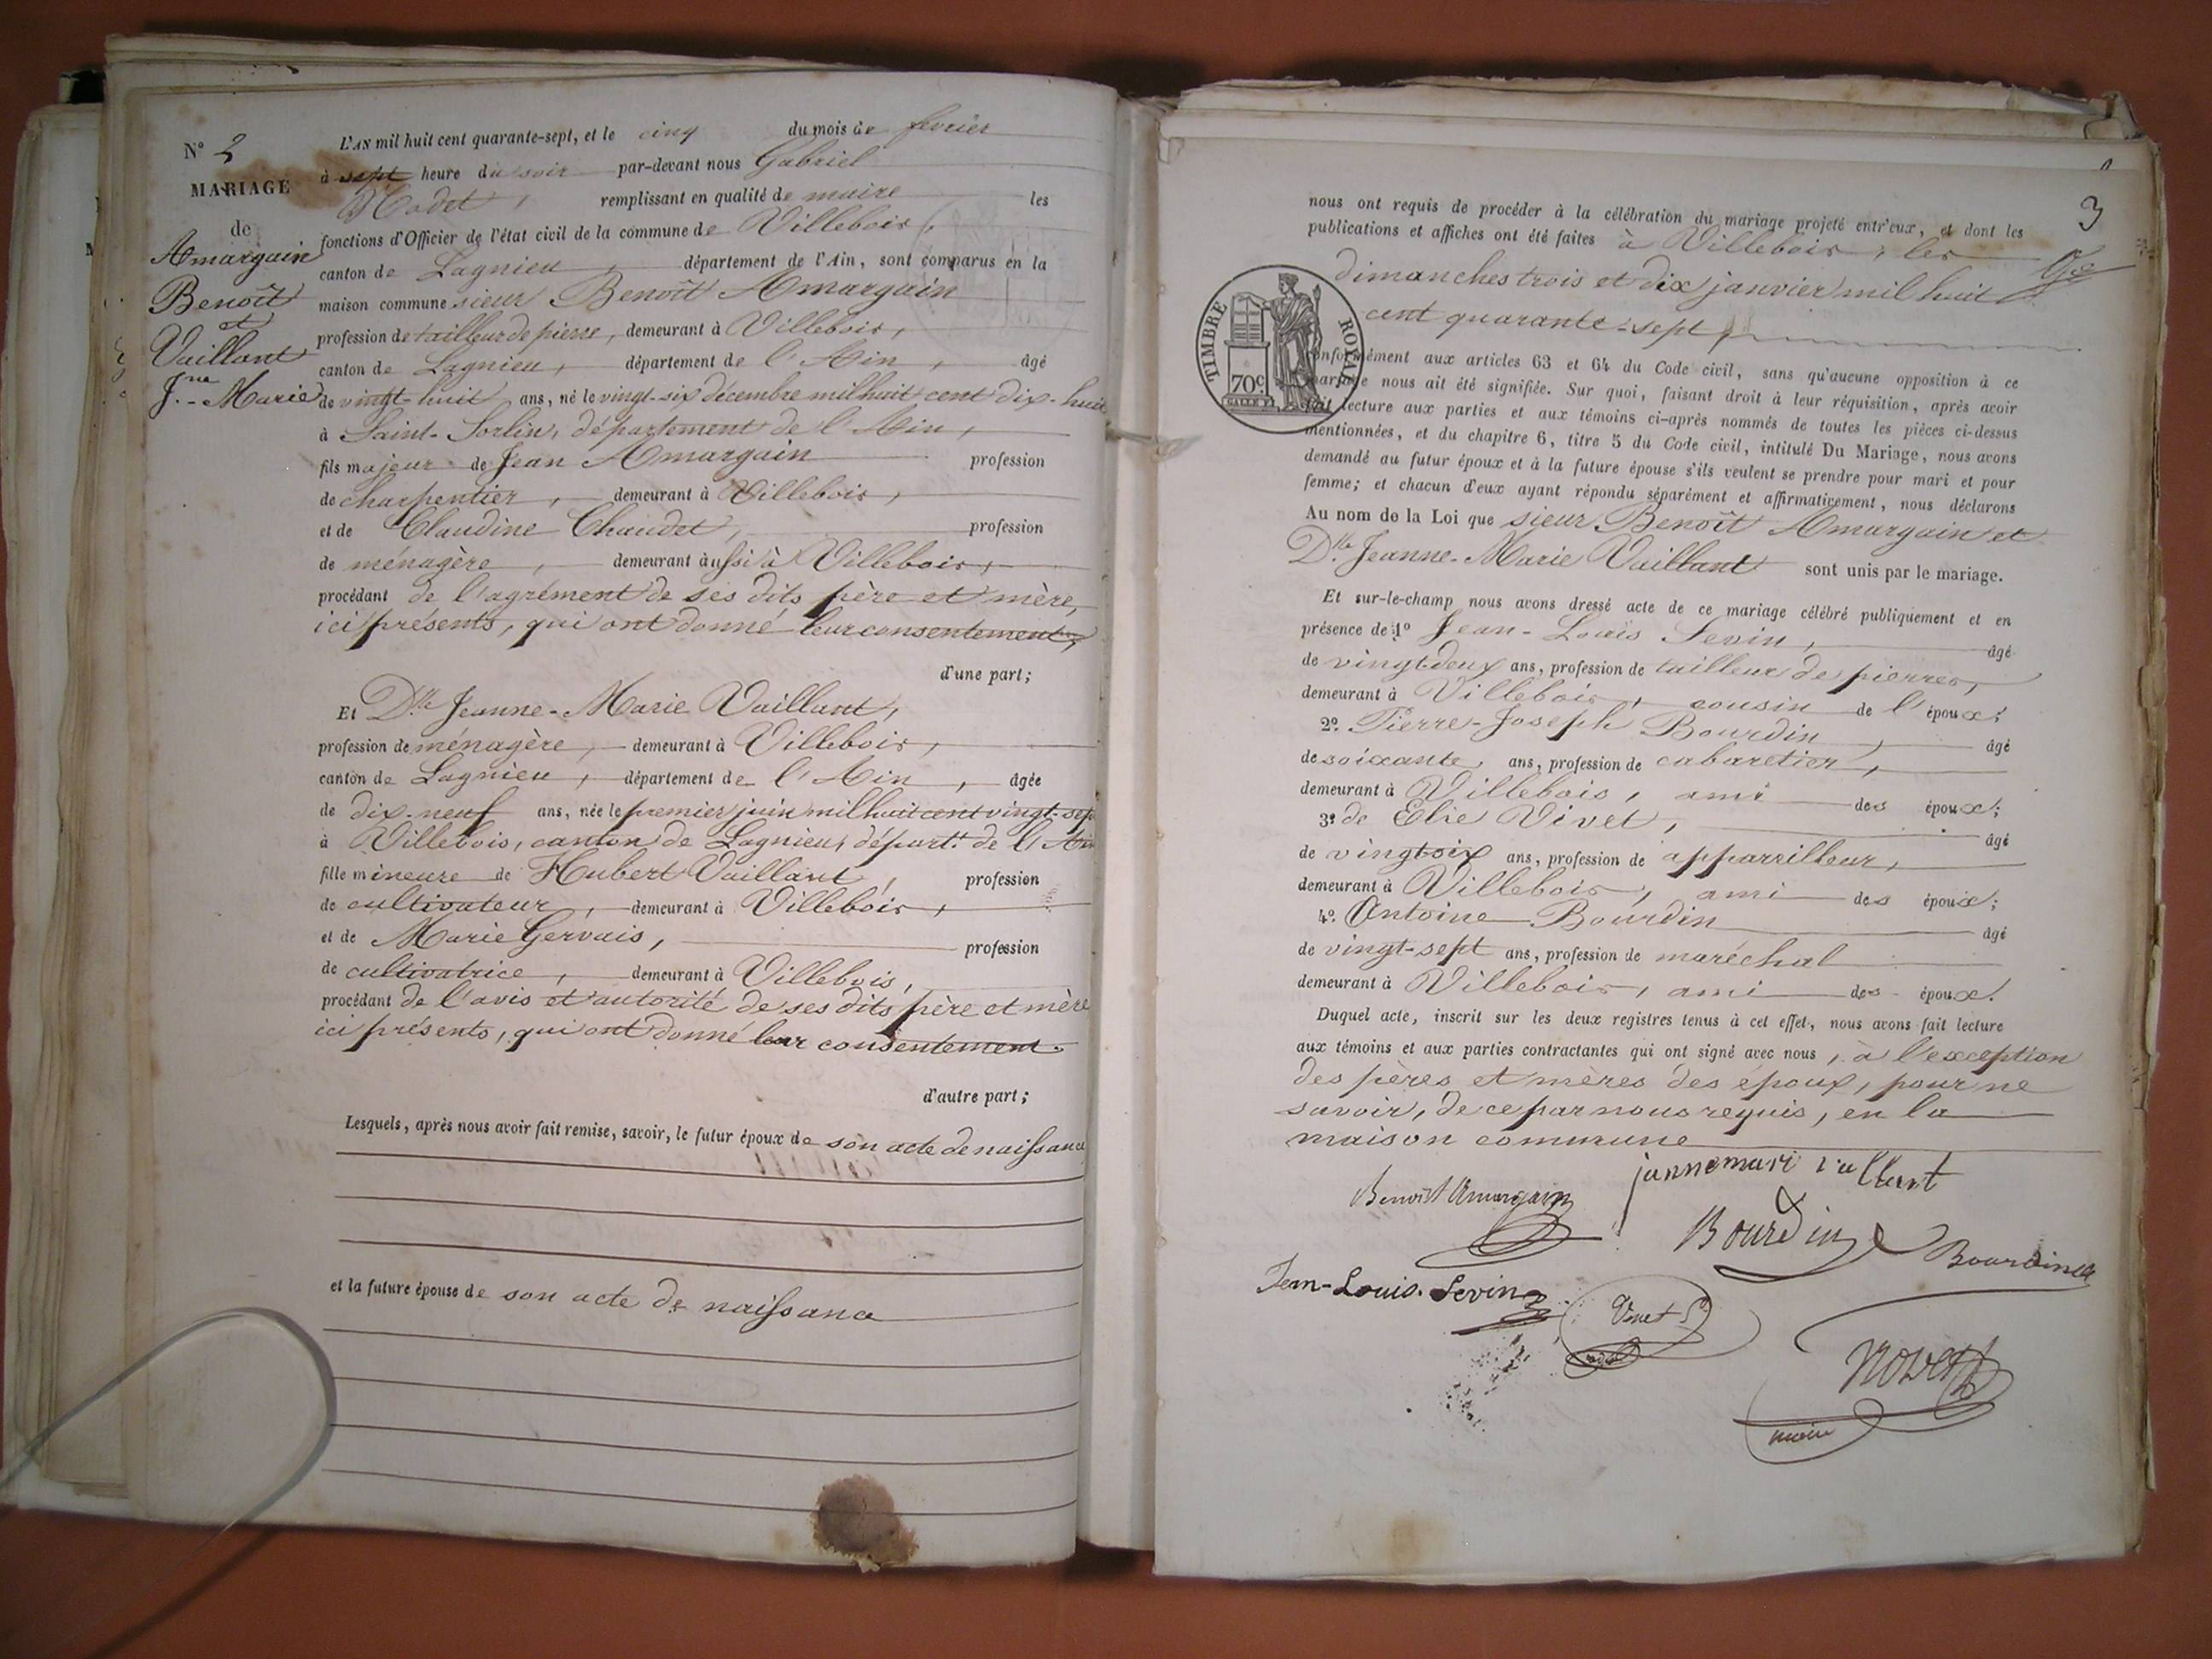 N° 2
MARIAGE
de
Amargain
Benoît
et
Vaillant
J.ne - Marie
L'AN mil huit cent quarante-sept, et le cinq du mois de février
à sept heure du soir par-devant nous Gabriel
remplissant en qualité de maire les
fonctions d'Officier de l'état civil de la commune de Villebois,
canton de Lagnieu, département de l'Ain, sont comparus en la
maison commune sieur Benoît Amargain
profession de tailleur de pierre, demeurant à Villebois,
canton de Lagnieu, département de l'Ain, âgé
de vingt-huit ans, né le vingt-six décembre mil huit cent dix-huit
à Saint-Sorlin, département de l'Ain,
fils majeur de Jean Amargain profession
de charpentier, demeurant à Villebois,
et de Claudine Chaudet, profession
de ménagère, demeurant aussi à Villebois,
procédant de l'agrément de ses dits père et mère,
ici présents, qui ont donné leur consentement,
d'une part;
Et Dlle Jeanne-Marie Vaillant,
profession de ménagère, demeurant à Villebois,
canton de Lagnieu, département de l'Ain, âgée
de dix-neuf ans, née le premier juin mil huit cent vingt-sep
à Villebois, canton de Lagnieu, départ.t de l'Ain
fille mineure de Hubert Vaillant, profession
de cultivateur, demeurant à Villebois,
et de Marie Gervais, profession
de cultivatrice, demeurant à Villebois,
procédant de l'avis et autorité de ses dits père et mère
ici présents, qui ont donné leur consentement.
d'autre part;
Lesquels, après nous avoir fait remise, savoir, le futur époux de son acte de naissance
et la future épouse de son acte de naissance
3
nous ont requis de procéder à la célébration du mariage projeté entr'eux, et dont les
publications et affiches ont été faites à Villebois, les
dimanches trois et dix janvier mil huit
cent quarante-sept,
TIMBRE ROYAL
70c
conformément aux articles 63 et 64 du Code civil, sans qu'aucune opposition à ce
mariage nous ait été signifiée. Sur quoi, faisant droit à leur réquisition, après avoir
fait lecture aux parties et aux témoins ci-après nommés de toutes les pièces ci-dessus
mentionnées, et du chapitre 6, titre 5 du Code civil, intitulé Du Mariage, nous avons
demandé au futur époux et à la future épouse s'ils veulent se prendre pour mari et pour
femme; et chacun d'eux ayant répondu séparément et affirmativement, nous déclarons
Au nom de la Loi que sieur Benoît Amargain et
Dlle Jeanne-Marie Vaillant sont unis par le mariage.
Et sur-le-champ nous avons dressé acte de ce mariage célébré publiquement et en
présence de 1° Jean-Louis Sevin, âgé
de vingt deux ans, profession de tailleur de pierres,
demeurant à Villebois, cousin de l'époux;
2° Pierre-Joseph Bourdin, âgé
de soixante ans, profession de cabaretier,
demeurant à Villebois, ami des époux;
3° de Elie Vivet, âgé
de vingt six ans, profession de appareilleur,
demeurant à Villebois, ami des époux;
4° Antoine Bourdin âgé
de vingt-sept ans, profession de maréchal
demeurant à Villebois, ami des époux.
Duquel acte, inscrit sur les deux registres tenus à cet effet, nous avons fait lecture
aux témoins et aux parties contractantes qui ont signé avec nous, à l'exception
des pères et mères des époux, pour ne
savoir, de ce par nous requis, en la
maison commune
Benoît Amargain
Bourdin
Bourdin
Jean-Louis. Sevin
maire